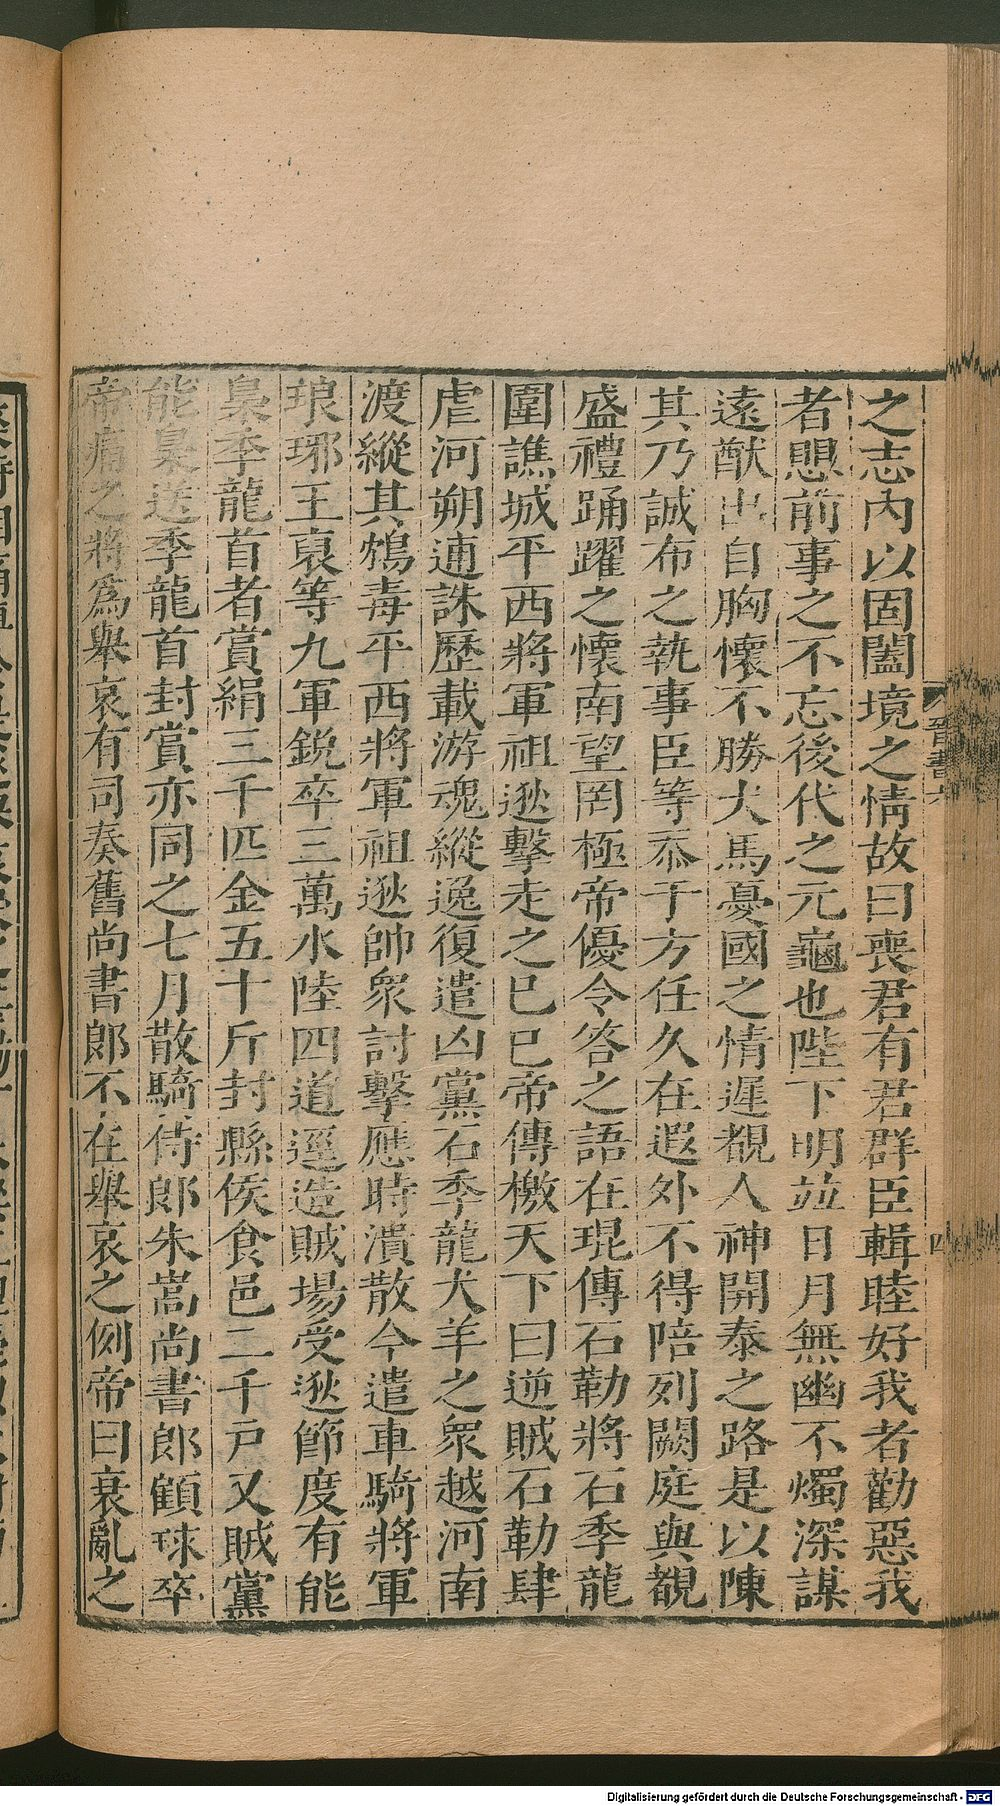 之志內以固闔境之情故曰喪君有君群臣輯睦好我者勸惡我
者思前事之不忘後代之元龜也陛下明並日月無幽不燭深謀
遠猷出自胸懷不勝犬馬憂國之情遲覩人神開泰之路是以陳
其乃誠布之執事臣等忝于方任久在遐外不得陪列闕庭與覩
盛禮踊躍之懷南望罔極帝優令答之語在琨傳石勒將石季龍
圍譙城平西將軍祖逖擊走之已巳帝傳檄天下曰逆賊石勒肆
虐河朔逋誅歷載游魂縱逸復遣凶黨石季龍犬羊之眾越河南
渡縱其鴆毒平西將軍祖逖帥眾討擊應時潰散今遣車騎將軍
琅邪王裒等九軍銳卒三萬水陸四道逕造賊場受逖節度有能
梟季龍首者賞絹三千匹金五十斤封縣侯食邑二千戶又賊黨
能梟送季龍首封賞亦同之七月散騎侍郎朱嵩尚書郎顧球卒
帝痛之將為舉哀有司奏舊尚書郎不在舉哀之例帝曰衰亂之
晉書六
四
Digitalisierung gefördert durch die Deutsche Forschungsgemeinschaft - DFG